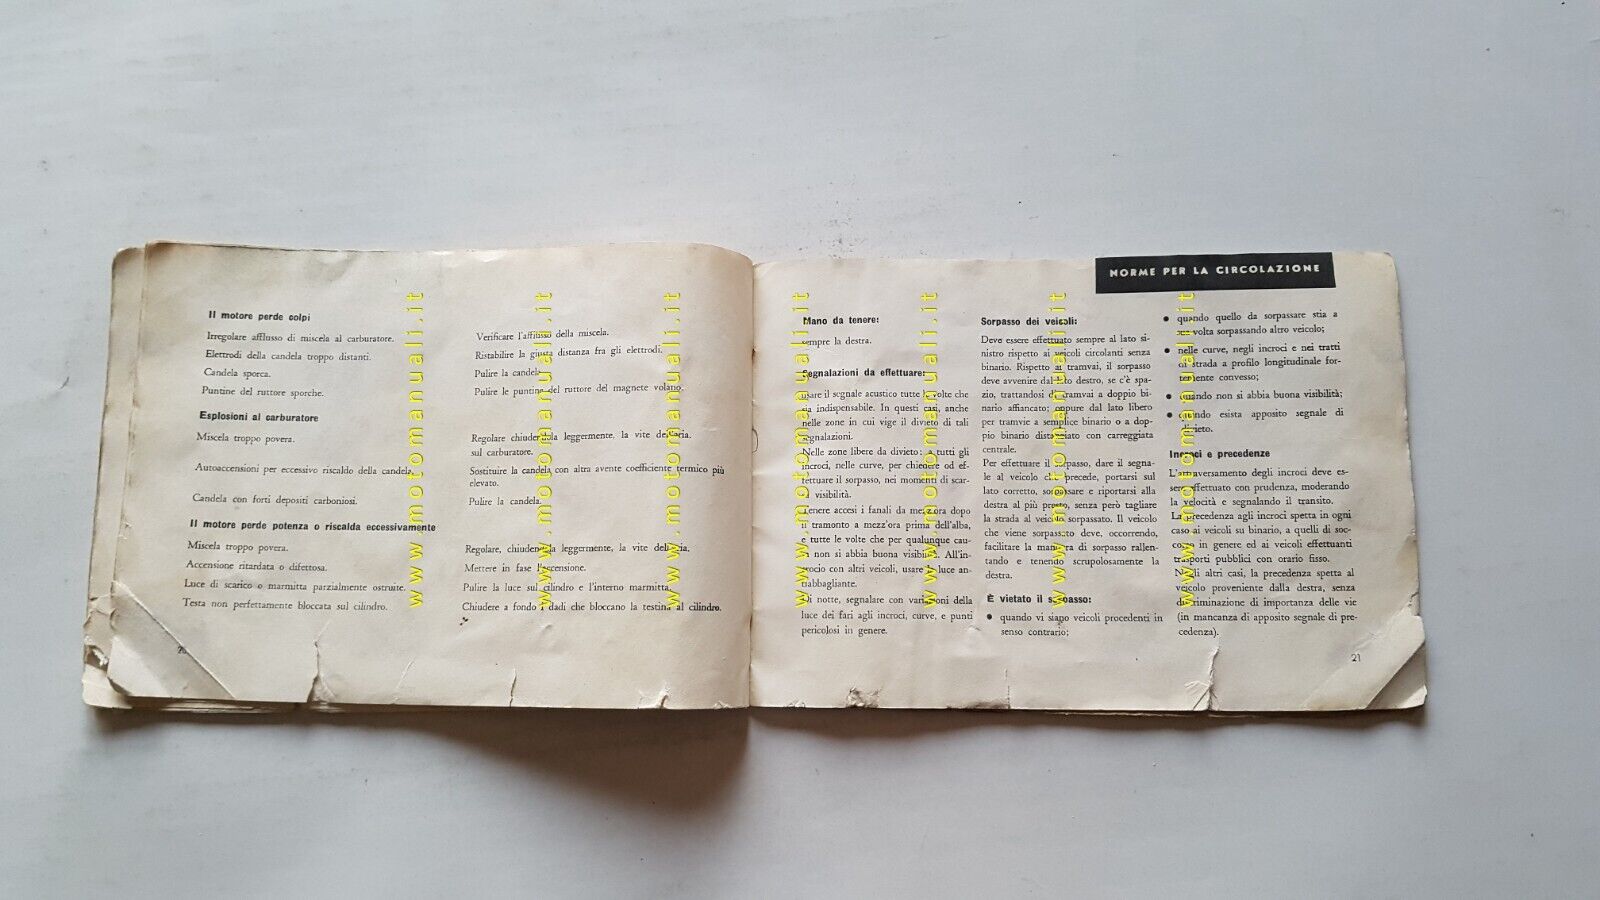 Il motore perde colpi
Irregolare afflusso di miscela al carburatore.
Verificare l'afflusso della miscela.
Elettrodi della candela troppo distanti.
Ristabilire la giusta distanza fra gli elettrodi.
Candela sporca.
Pulire la candela
Puntine del ruttore sporche.
Pulire le puntine del ruttore del magnete volano.
Esplosioni al carburatore
Miscela troppo povera.
Regolare chiudendola leggermente, la vite dell'aria.
sul carburatore.
Autoaccensioni per eccessivo riscaldo della candela.
Sostituire la candela con altra avente coefficiente termico più
elevato.
Candela con forti depositi carboniosi.
Pulire la candela.
Il motore perde potenza o riscalda eccessivamente
Miscela troppo povera.
Regolare, chiudendola leggermente, la vite dell'aria.
Accensione ritardata o difettosa.
Mettere in fase l'accensione.
Luce di scarico o marmitta parzialmente ostruite.
Pulire la luce sul cilindro e l'interno marmitta.
Testa non perfettamente bloccata sul cilindro.
Chiudere a fondo i dadi che bloccano la testina al cilindro.
NORME PER LA CIRCOLAZIONE
Mano da tenere:
sempre la destra.
Segnalazioni da effettuare:
usare il segnale acustico tutte le volte che
sia indispensabile. In questi casi, anche
nelle zone in cui vige il divieto di tali
segnalazioni.
Nelle zone libere da divieto: a tutti gli
incroci, nelle curve, per chiedere od ef-
fettuare il sorpasso, nei momenti di scar-
sa visibilità.
Tenere accesi i fanali da mezz'ora dopo
il tramonto a mezz'ora prima dell'alba,
e tutte le volte che per qualunque cau-
sa non si abbia buona visibilità. All'in-
crocio con altri veicoli, usare la luce an-
tiabbagliante.
Di notte, segnalare con variazioni della
luce dei fari agli incroci, curve, e punti
pericolosi in genere.
Sorpasso dei veicoli:
Deve essere effettuato sempre al lato si-
nistro rispetto ai veicoli circolanti senza
binario. Rispetto ai tramvai, il sorpasso
deve avvenire dal lato destro, se c'è spa-
zio, trattandosi di tramvai a doppio bi-
nario affiancato; oppure dal lato libero
per tramvie a semplice binario o a dop-
pio binario distanziato con carreggiata
centrale.
Per effettuare il sorpasso, dare il segna-
le al veicolo che precede, portarsi sul
lato corretto, sorpassare e riportarsi alla
destra al più presto, senza però tagliare
la strada al veicolo sorpassato. Il veicolo
che viene sorpassato deve, occorrendo,
facilitare la manovra di sorpasso rallen-
tando e tenendo scrupolosamente la
destra.
È vietato il sorpasso:
● quando vi siano veicoli procedenti in
senso contrario;
● quando quello da sorpassare stia a
sua volta sorpassando altro veicolo;
● nelle curve, negli incroci e nei tratti
di strada a profilo longitudinale for-
temente convesso;
● quando non si abbia buona visibilità;
● quando esista apposito segnale di
divieto.
Incroci e precedenze
L'attraversamento degli incroci deve es-
sere effettuato con prudenza, moderando
la velocità e segnalando il transito.
La precedenza agli incroci spetta in ogni
caso ai veicoli su binario, a quelli di soc-
corso in genere ed ai veicoli effettuanti
trasporti pubblici con orario fisso.
Negli altri casi, la precedenza spetta al
veicolo proveniente dalla destra, senza
discriminazione di importanza delle vie
(in mancanza di apposito segnale di pre-
cedenza).
21
www.motomanuali.it
www.motomanuali.it
www.motomanuali.it
www.motomanuali.it
www.motomanuali.it
www.motomanuali.it
www.motomanuali.it